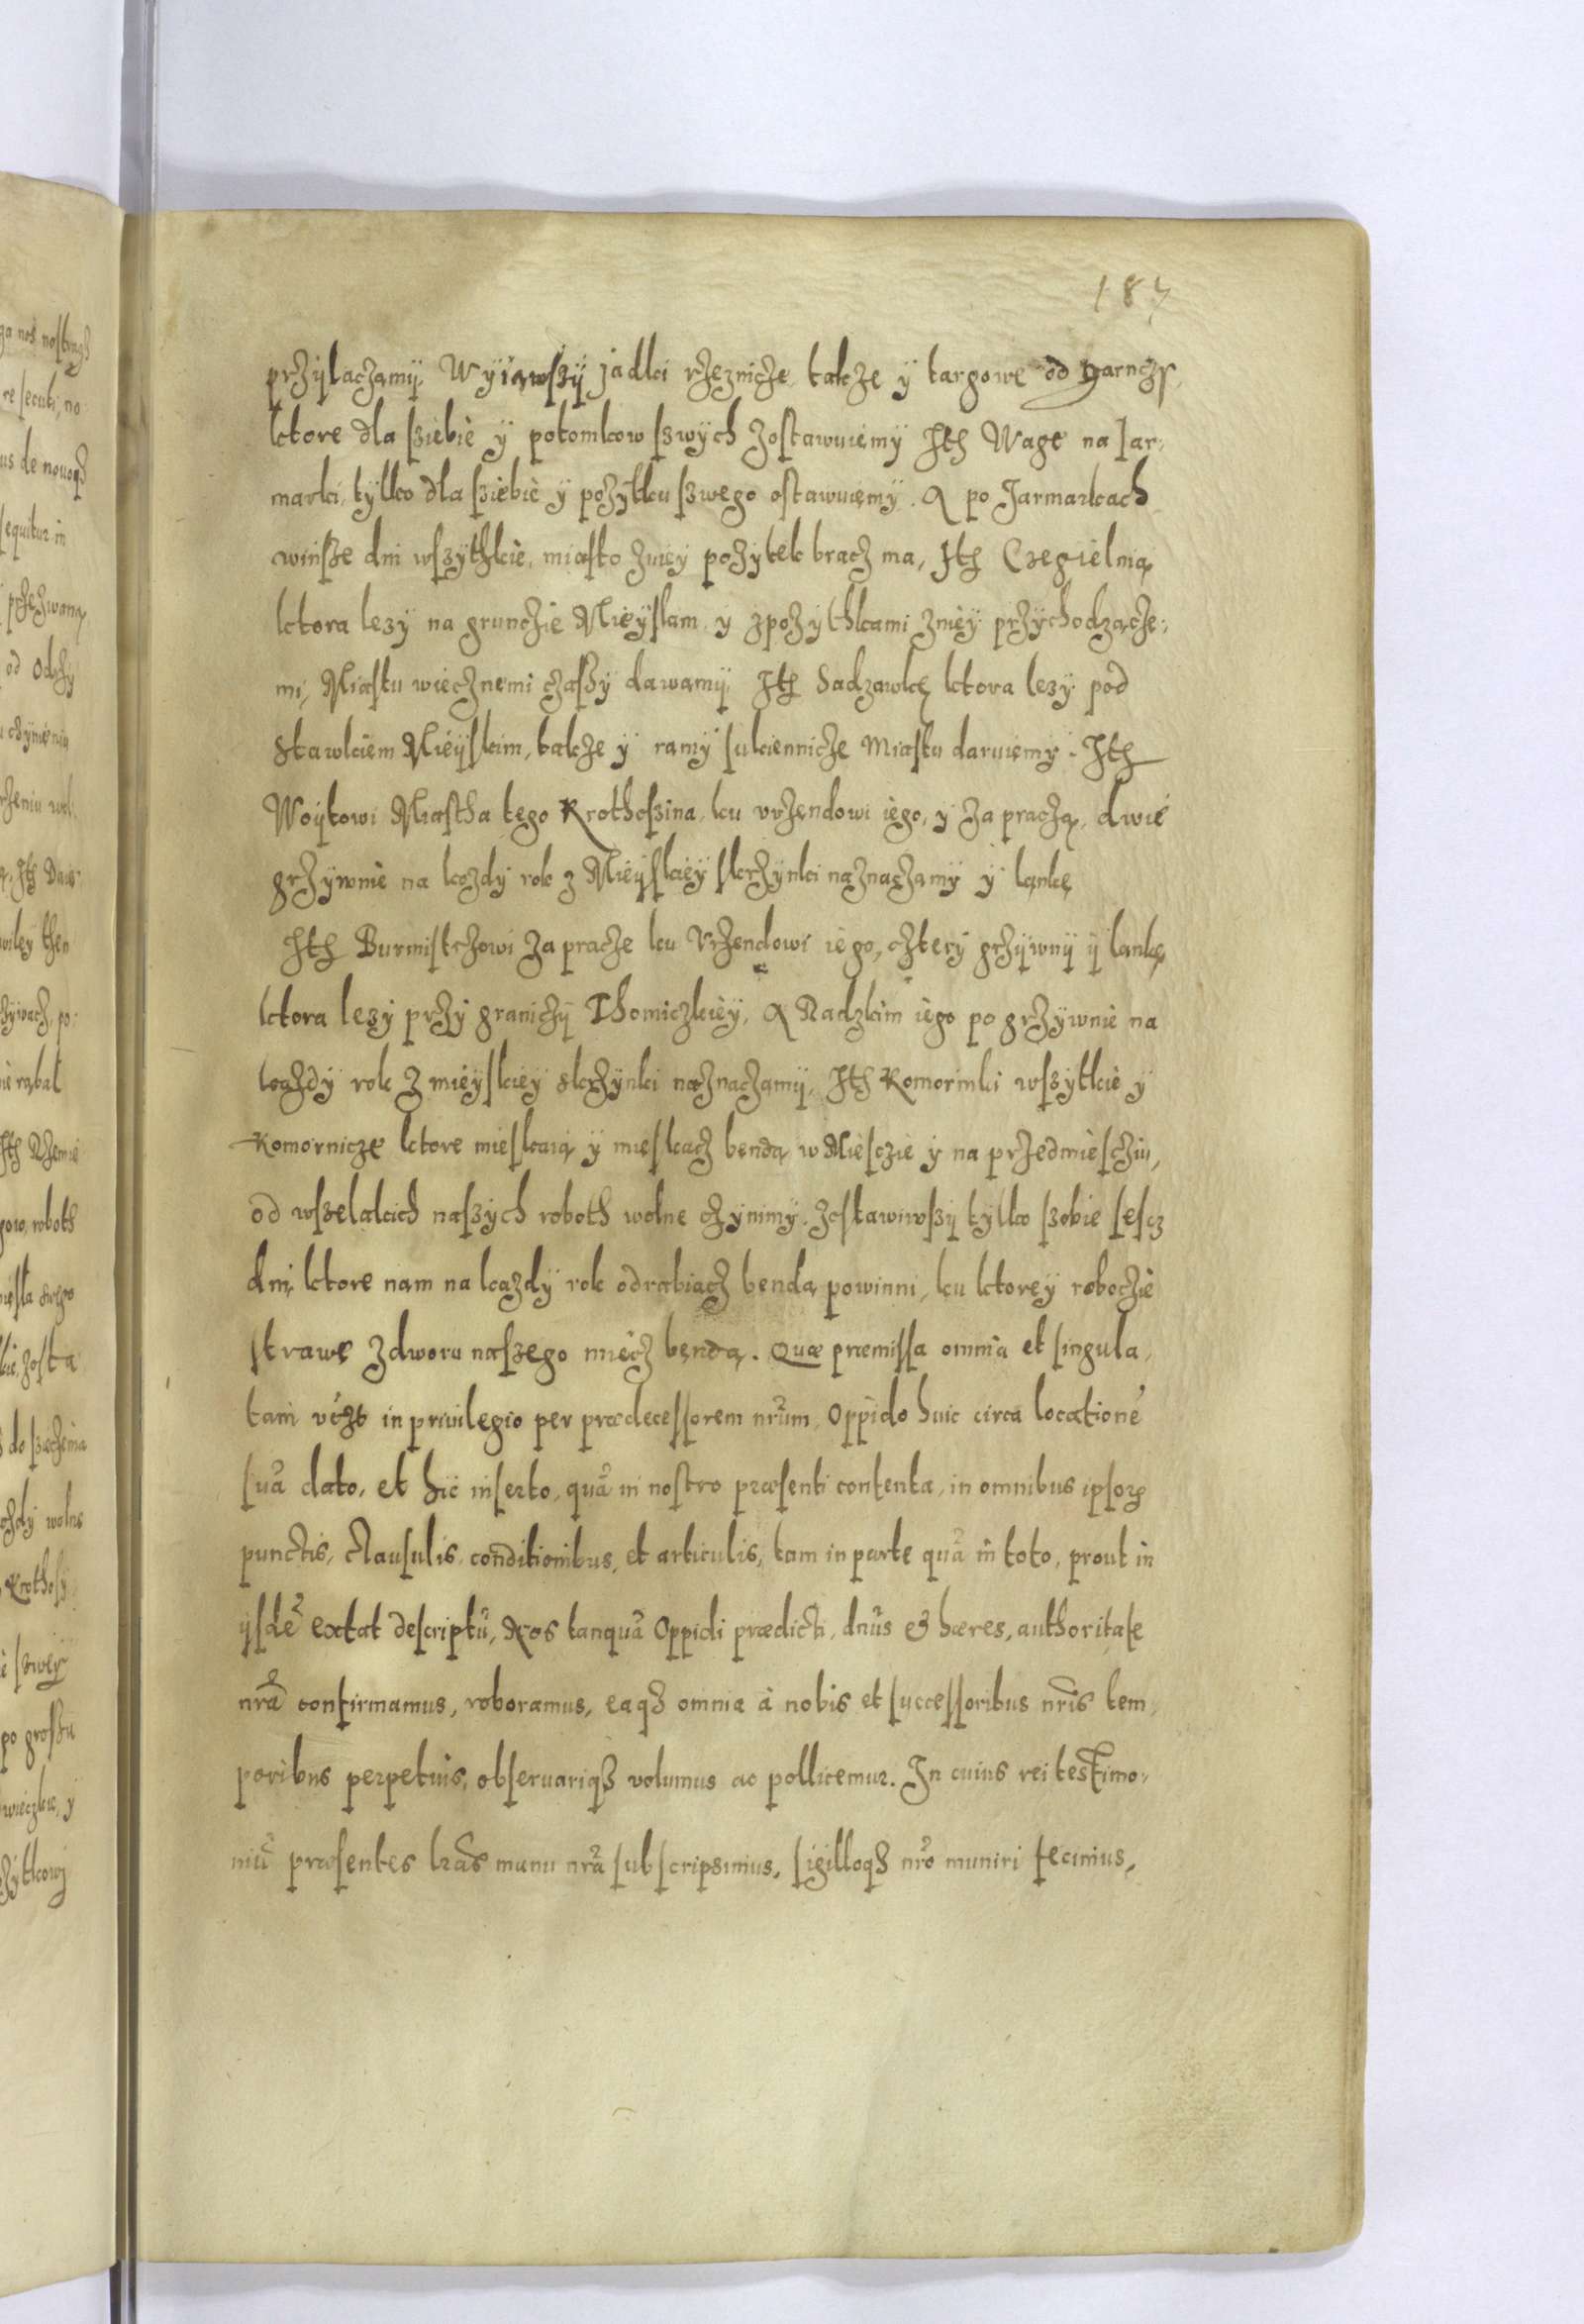 187
przylaczamy, Wyiąwszy jadki rzeznicze, takze y targowe od garnczy,
ktore dla sziebie y potomkow szwych zostawuiemy Ith Wagę na Jar,
marki, tylko dla sziebie y pozytku szwego ostawuięmy. A po Jarmarkach
winsze dni wszythkie, miasto zniey pozytek bracz ma, Ith Czegielnią
ktora lezy na grunczie Mieyskim, y zpozythkami zniey przychodzącze,
mi, Miastu wiecznemi czaszy dawamy, Ith Sadzawkę ktora lezy pod
Stawkiem Mieyskim, takze y ramy sukiennicze Miastu daruiemy. Ith
Woytowi Miastha tego Krothoszina, ku vrzendowi iego, y za praczą, dwie
grzywnie na kazdy rok z Mieyskiey skrzynki naznaczamy y ląnkę
Ith Burmistrzowi za pracze ku Vrzendowi iego, cztery grzywny y lankę,
ktora lezy przy graniczy Thomiczkiey, A Radzkim iego po grzywnie na
kazdy rok z mieyskiey skrzynki naznaczamy, Ith Komorniki wszytkie y
Komornicze ktore mieskaią y mieskacz bendą w Miesczie y na przedmiesciu,
od wszelakich naszych roboth wolne czynimy. Zostawiwszy tylko szobie sescz
dni, ktore nam na kazdy rok odrabiacz bendą powinni, ku ktorey roboczie
strawę zdworu naszego miecz bęndą. Quæ præmissa omnia et singula,
tam in privilegio per prædecessorem nrum, Oppido huic circa locatione
sua dato, et hic inserto, qua in nostro præsenti contenta, in omnibus ipsorꝫ
punctis, clausulis, conditionibus, et articulis, tam in parte qua in toto, prout in
ijsde extat descriptu, Nos tanqua Oppidi prædicti, dnus & hæres, authoritate
nra confirmamus, roboramus, eaqꝫ omnia à nobis et successoribus nris tem,
poribus perpetuis, obseruariqꝫ volumus ac pollicemur. In cuius rei testimo,
niu præsentes lras manu nra subscripsimus, sigilloqꝫ nro muniri fecimus,